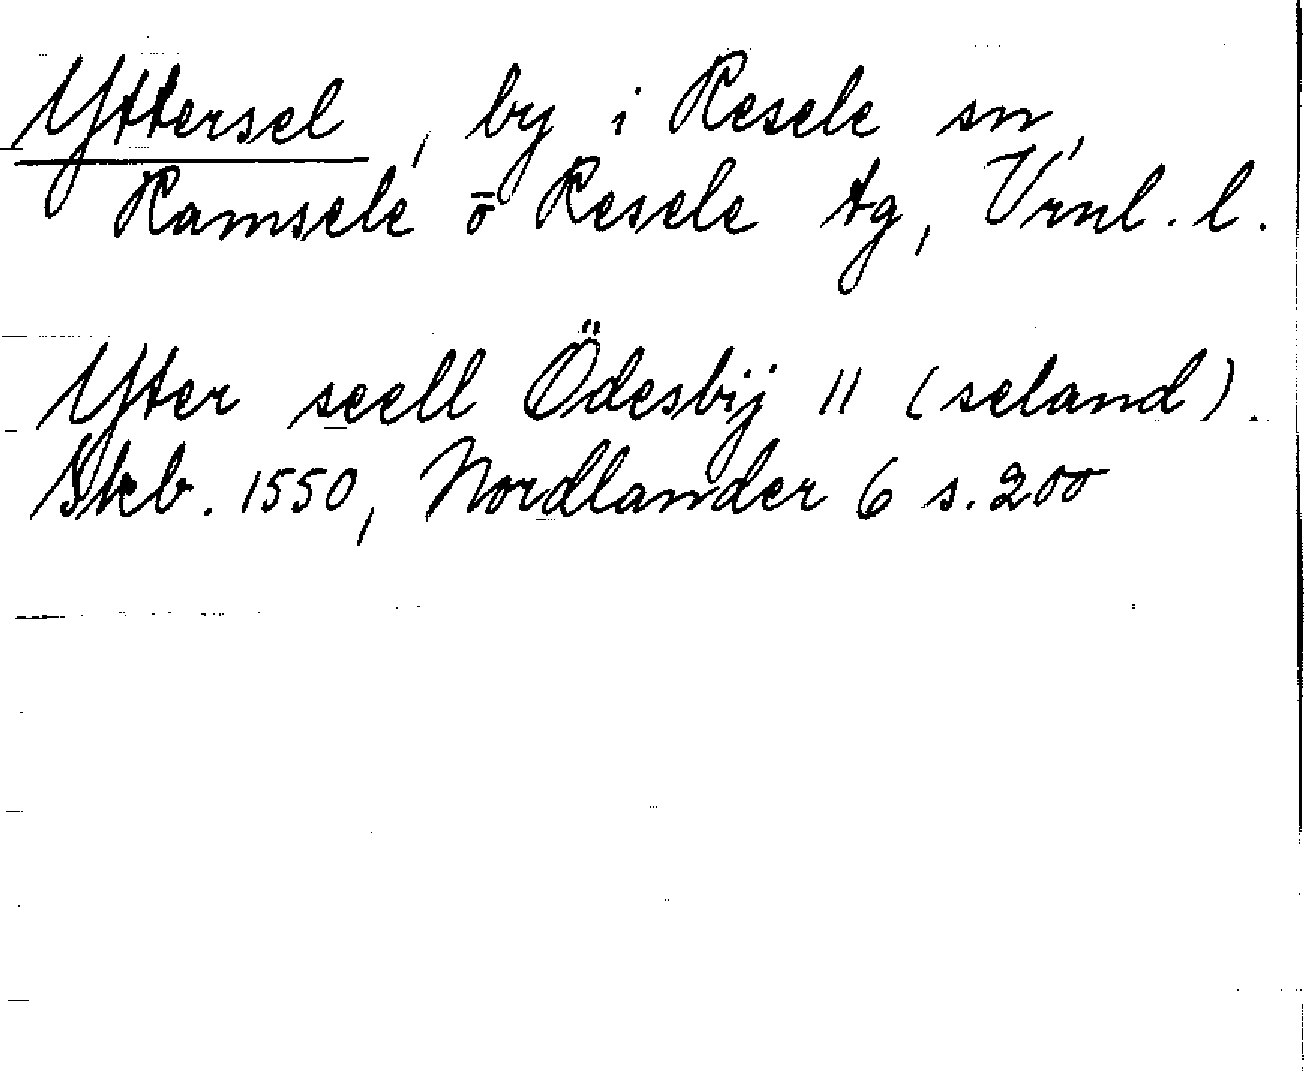 Yttersel, by i Resele sn,
Ramsele ō Resele tg, Vrnl. l.
Yter seell Ödesbÿ 11 (seland).
Skb. 1550, Nordlander 6 s. 200